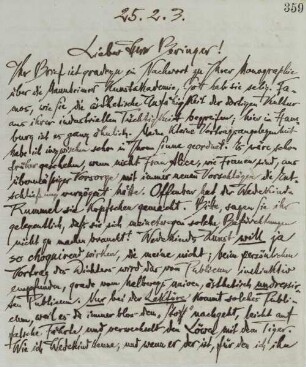 359
25.2.3.
Lieber Herr Beringer!
Ihr Brief ist geradezu ein Nachwort zu Ihrer Monographie
über die Mannheimer Kunstakademie. Gott hab sie selig. Fa-
mos, wie Sie die ästhetische Unfähigkeit der dortigen Kultur
aus ihrer industriellen Tüchtigkeit begreifen; hier in Ham-
burg ist es ganz ähnlich. Meine kleine Vortragsangelegenheit
habe ich inzwischen schon in Ihrem Sinne geordnet. Es wäre schon
früher geschehen, wenn nicht Frau Alice, wie Frauen sind, aus
Vorsorge mit immer neuen Vorschlägen die Ent-
schließung verzögert hätte. Offenbar hat der Wedekind-
Rummel sie kopfscheu gemacht. Bitte, sagen Sie ihr
gelegentlich, daß sie sich meinetwegen solche
nicht zu machen braucht! Wedekinds Kunst will ja
so choquirend wirken, die meine nicht; beim persönlichen
Vortrag des Dichters wird das vom Publicum instinktiv
empfunden, grade vom naiven, ästhetisch
Publicum. Nur bei der Lektüre kommt solches Publi-
cum, weil es da immer bloß dem „Stoff" nachgeht, leicht auf
falsche Fährte und verwechselt den Löwen mit dem Tiger.
Wie ich Wedekind kenne, und wenn er der ist, für den ich ihn